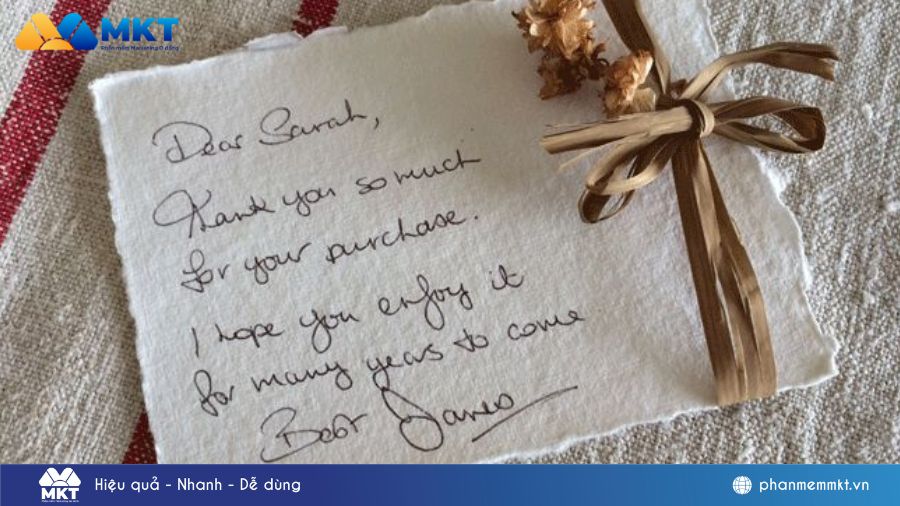 MKT
Phần mềm Marketing Di động
Dear Sarah,
Thank you so much
for your purchase.
I hope you enjoy it
for many years to come
Best James
MKT
Hiệu quả - Nhanh - Dễ dùng
phanmemmkt.vn